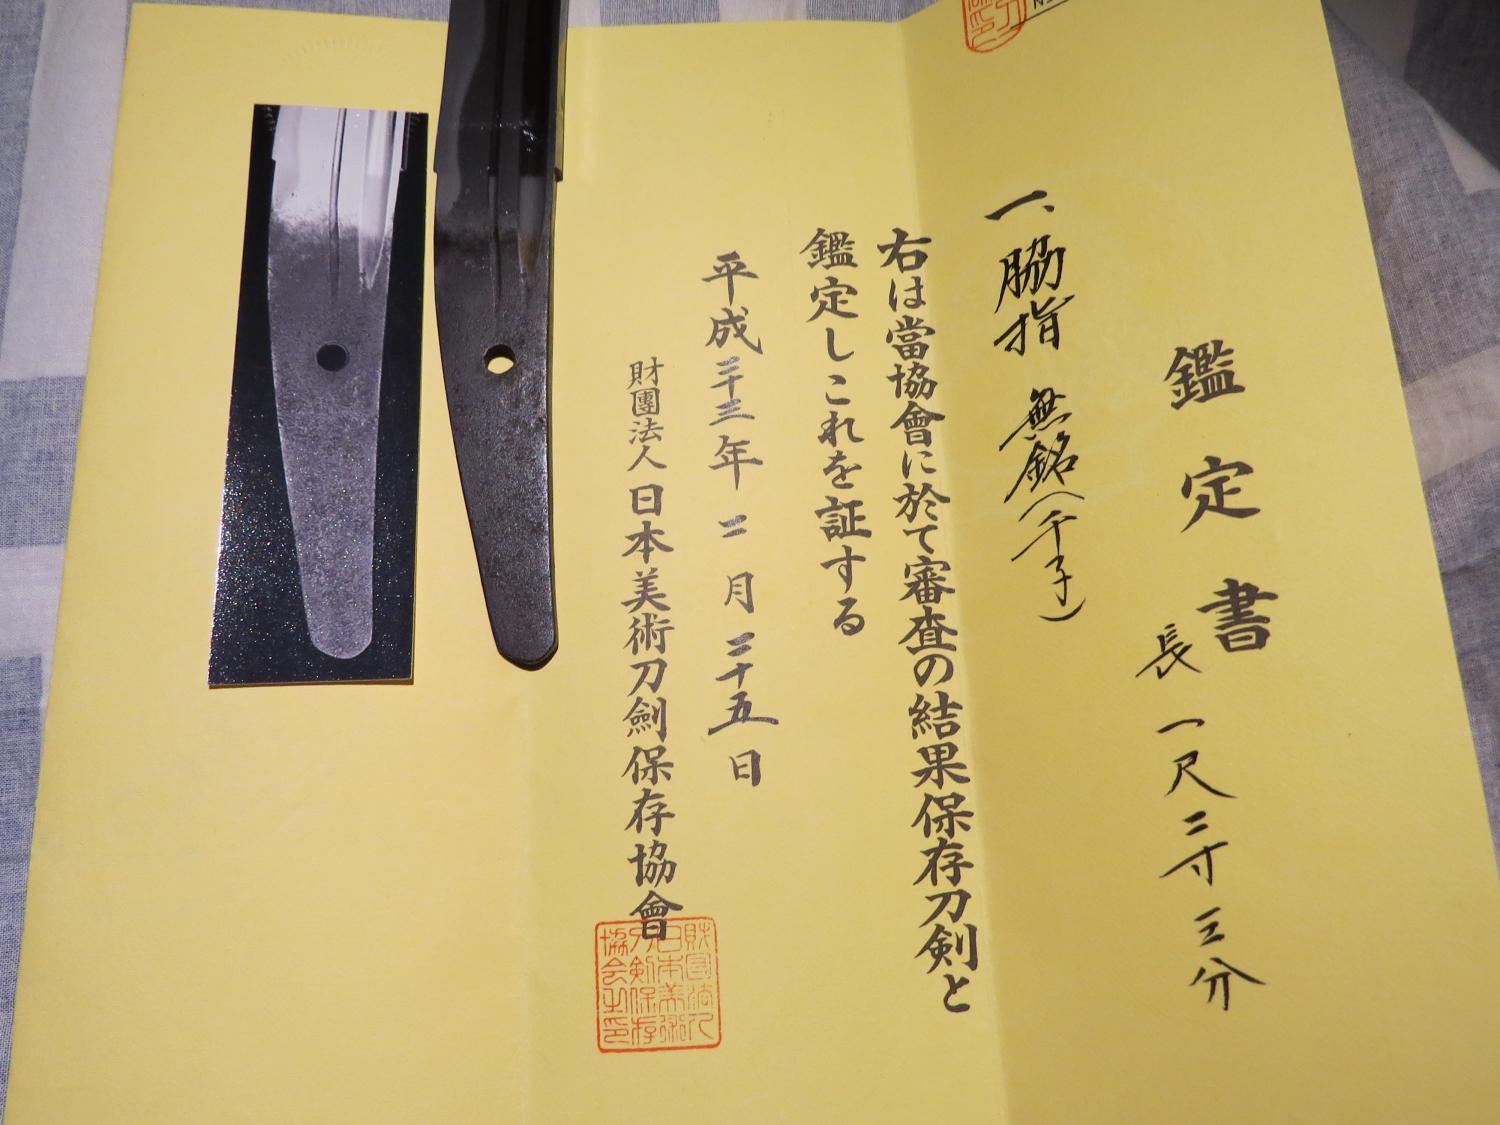 鑑定書
一、脇指 無銘(千子)
長一尺二寸三分
右は當協會に於て審査の結果保存刀剣と
鑑定しこれを証する
平成二十三年二月二十五日
財團法人日本美術刀劍保存協會
財團法人
日本美術
刀剣保存
協会之印